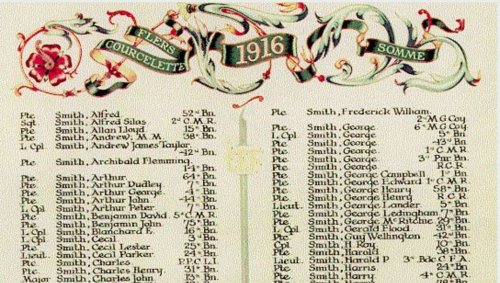 FLERS COURCELETTE
1916
SOMME
Pte. Smith, Alfred 52nd Bn.
Sgt. Smith, Alfred Silas 2nd C.M.R.
Pte. Smith, Allan Lloyd 15th Bn.
Pte. Smith, Andrew, M.M. 38th Bn.
L. Cpl. Smith, Andrew James Taylor
42nd Bn.
Pte. Smith, Archibald Flemming
14th Bn.
Pte. Smith, Arthur 64th Bn.
Pte. Smith, Arthur Dudley 7th Bn.
Pte. Smith, Arthur George 4th Bn.
Pte. Smith, Arthur John 44th Bn.
L. Cpl. Smith, Arthur Peter 7th Bn.
Pte. Smith, Benjamin David 5th C.M.R.
Pte. Smith, Benjamin John 75th Bn.
L. Cpl. Smith, Blanchard E. 16th Bn.
L. Cpl. Smith, Cecil 3rd Bn.
Pte. Smith, Cecil Lester 25th Bn.
Lieut. Smith, Cecil Parker 24th Bn.
Pte. Smith, Charles P.P.C.L.I.
Pte. Smith, Charles Henry 31st Bn.
Major Smith, Charles John 13th Bn.
Pte. Smith, Frederick William
2nd M.G.Coy
Pte. Smith, George 6th M.G.Coy
L. Cpl. Smith, George 5th Bn.
Pte. Smith, George 43rd Bn.
Pte. Smith, George 1st C.M.R.
Pte. Smith, George 3rd Pnr. Bn.
Pte. Smith, George R.C.R.
Pte. Smith, George Campbell 1st Bn.
Pte. Smith, George Edward 1st C.M.R.
Pte. Smith, George Henry 58th Bn.
Pte. Smith, George Henry R.C.R.
Lieut. Smith, George Lander 5th Bn.
Pte. Smith, George Ledingham 7th Bn.
Pte. Smith, George McRitchie 29th Bn.
L. Cpl. Smith, Gerald Flood 31st Bn.
Pte. Smith, Guy Wellington 42nd Bn.
Cpl. Smith, H. Roy 10th Bn.
Pte. Smith, Harold 26th Bn.
Lieut. Smith, Harold P. 3rd Bde. C.F.A.
Pte. Smith, Harris 24th Bn.
Pte. Smith, Harry 4th C.M.R.
Smith, Harry 78th Bn.